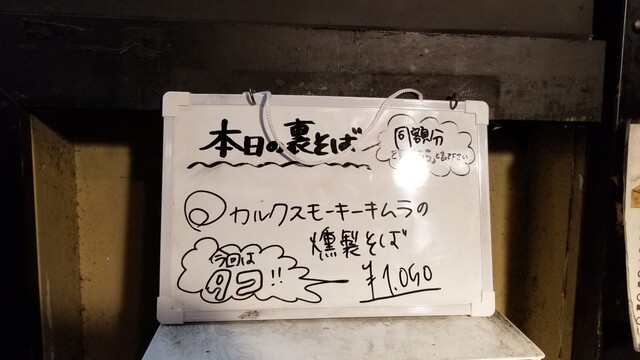 本日の裏そば
同額分
と言って下さい
カルクスモーキーキムラの
燻製そば
今回は
タコ!!
¥1.050